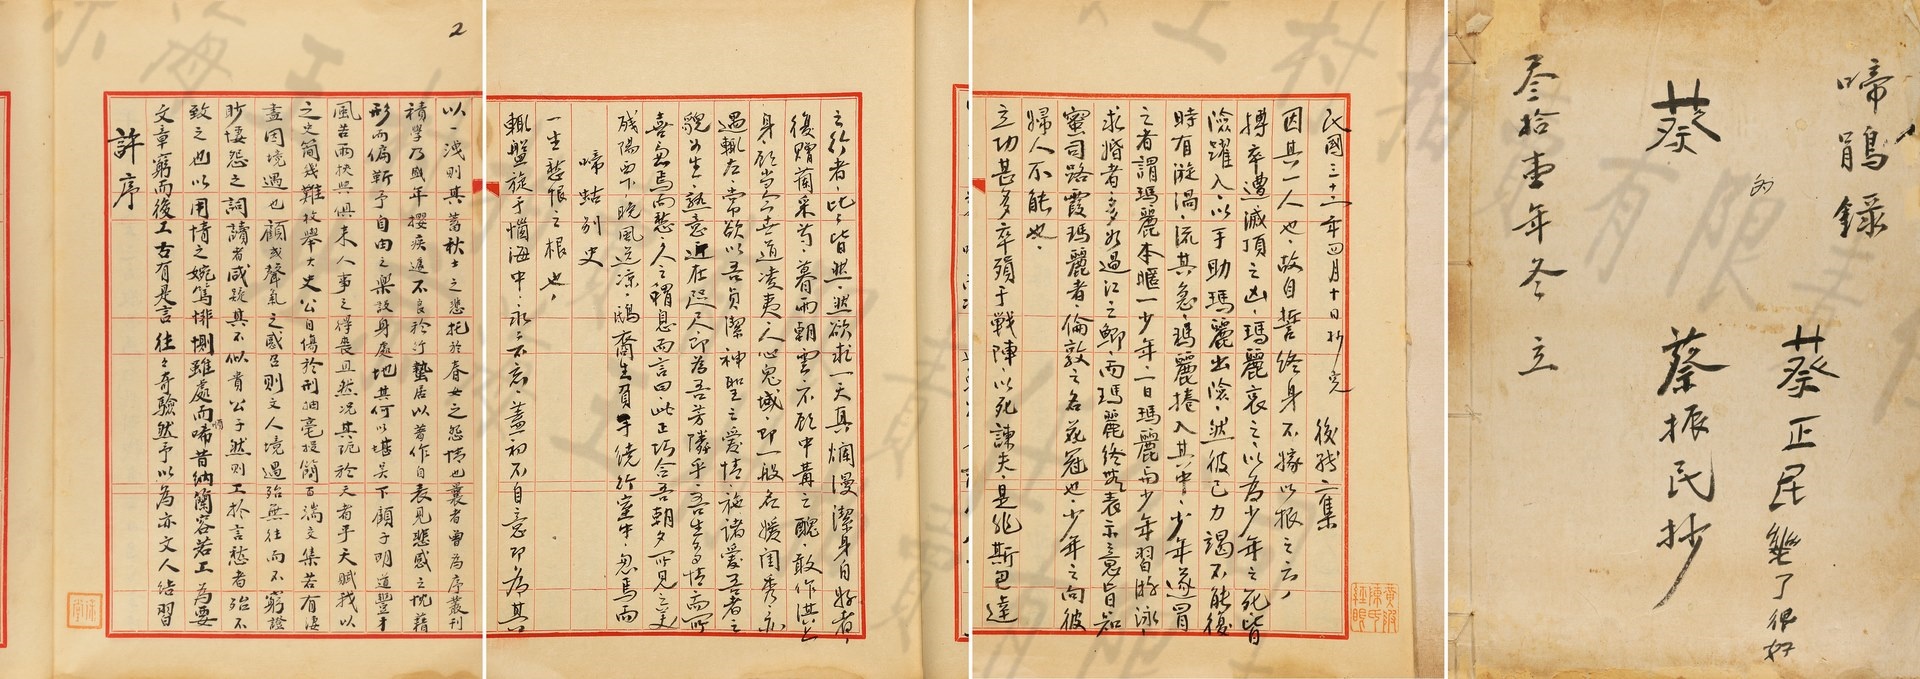 2
許序
文章窮而後工古有是言往々奇驗然予以為亦文人結習
致之也以用情之婉篤悱惻雖處而啼昔納蘭容若工為要
眇悽怨之詞讀者咸疑其不似貴公子然則工於言愁者殆不
盡因境遇也顧或聲氣之感召則文人境遇殆無往而不窮證
之史簡幾難枚舉太史公自傷於刑抽毫投簡百端文集若有淒
風苦雨挾與俱來人事之得喪且然況其阨於天者乎天賦我以
形而偏靳予自由之樂設身處地其何以堪吳下顧子明道豐才
積學乃盛年櫻疾遂不良於行蟄居以著作自表見悲感之忱藉
以一洩則其蓄秋士之悲托於春女之怨情也曩者曹為序叢刊
輒盤旋于惱海中，永々不忘，蓋初不自意即為其
一生愁恨之根也，
啼蛄別史
殘陽西下，晚風送涼，鴟齋生負手繞行室中，忽焉而
喜，忽焉而愁，人之謂息而言曰，此正巧合吾朝夕所見之美
貌少生，熟意近在咫尺，即為吾芳隣乎，吾生多情，而所
遇輒左，常欲以吾貞潔神聖之愛情，施諸愛吾者之
身，顧當今世道凌夷，人心鬼域，即一般名媛閨秀，亦
復贈蘭采芍，暮雨朝雲，不顧中冓之醜，敢作淇上
之行者，比々皆然，然欲求一天真爛漫潔身自好者，
立功甚多，卒殞于戰陣，以死諫夫，是非斯巴達
婦人不能也，
蜜司路霞瑪麗者，倫敦之名花冠也，少年之向彼
求婚者，多如過江之鯽，而瑪麗終無表示意，皆日知
之者謂瑪麗本暱一少年，一日瑪麗與少年習游泳，
時有漩渦，流甚急，瑪麗捲入其中，少年遂冒
險躍入，以手助瑪麗出險，然彼已力竭不能復
搏，卒遭滅頂之凶，瑪麗哀之，以為少年之死皆
因其一人也，故自誓終身不嫁以報之云，
民國三十二年四月十日抄完　後殘二集
啼鵑錄
蔡正民
幾了很好
蔡
蔡振民抄
叁拾壹年冬立